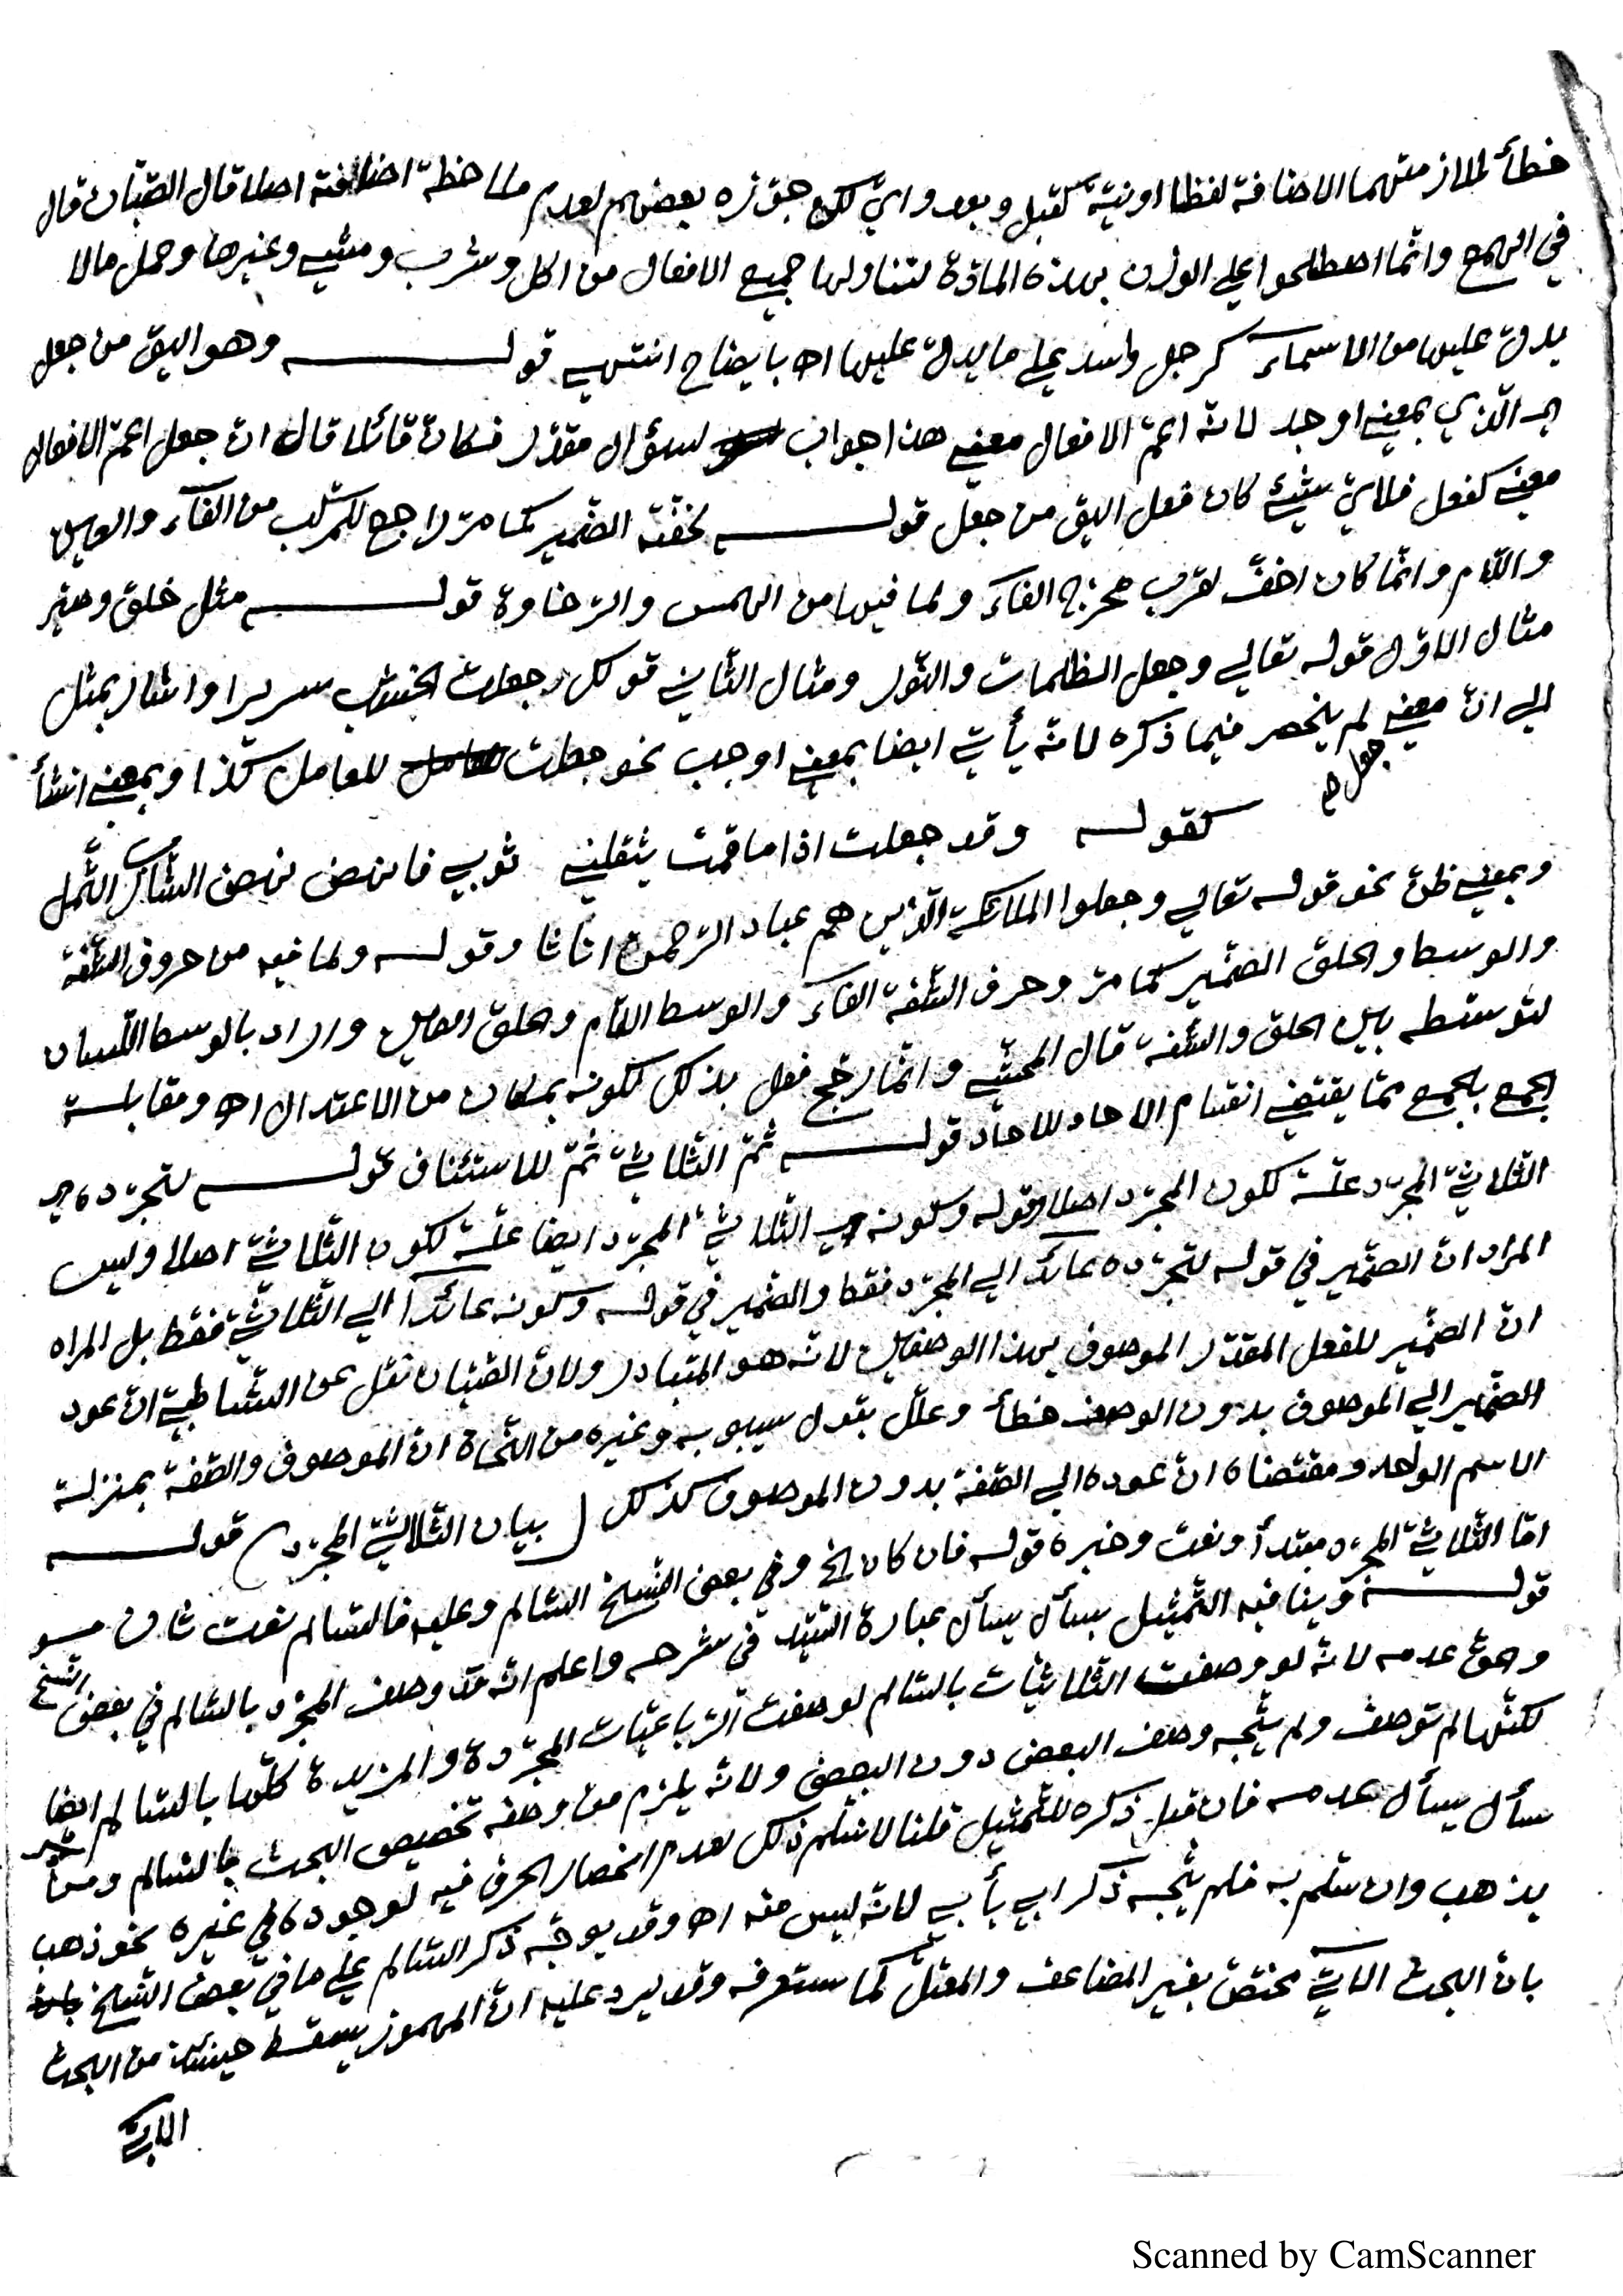 خطأ لملازمتهما الاضافة لفظا او نية كقبل وبعد واي لكن جوّزه بعضهم لعدم ملاحظة اضافته اصلا قال الصبّان قال
في الهمع وانّما اصطلحوا على الوزن بهذه المادّة لتناولها جميع الافعال من اكل وشرب ومشى وغيرها وحمل مالا
يدلّ عليها من الاسماء كرجل واسد على ما يدلّ عليها اه بايضاح انتهى قوله وهو اليق من جعل
اي الّذي بمعنى اوجد لانّه اعمّ الافعال معنى هذا جواب لسؤال مقدّر فكانّ قائلا قال انّ جعل اعمّ الافعال
معنى كفعل فلايّ شيئ كان فعل اليق من جعل قوله لخفّته الضّمير كما مرّ راجع للمركّب من الفآء والعين
واللّام وانّما كان اخفّ لقرب مخرج الفآء ولما فيها من الهمس والرّخاوة قوله مثل خلق وصيّر
مثال الاوّل قوله تعالى وجعل الظلمات والنّور ومثال الثّاني قولك جعلت الخشب سريرا واشار بمثل
الى انّ معنى جعل صح لم ينحصر فيما ذكره لانّه يأتي ايضا بمعنى اوجب نحو جعلت للعامل كذا وبمعنى انشأ
كقوله وقد جعلت اذا ما قمت يثقلني ثوبي فانهض نهض الشّارب الثّمل
وبمعنى ظنّ نحو قوله تعالى وجعلوا الملائكة الّذين هم عباد الرّحمن اناثا وقوله ولما فيه من حروف الشّفة
والوسط والحلق الضّمير كما مرّ وحرف الشّفة الفآء والوسط اللّام والحلق العين واراد بالوسط اللّسان
لتوسّطه بين الحلق والشّفة قال المحشّي وانّما رجّح فعل بذلك لكونه بمكان من الاعتدال اه ومقابلة
الجمع بالجمع ممّا يقتضي انقسام الاحاد للاحاد قوله ثمّ الثّلاثيّ ثمّ للاستئناف قوله لتجرّده اي
الثّلاثيّ المجرّد علّة لكون المجرّد اصلا وقوله وكونه اي الثّلاثيّ المجرّد ايضا علّة لكون الثّلاثيّ اصلا وليس
المراد انّ الضّمير في قوله لتجرّده عائد الى المجرّد فقط والضّمير في قوله وكونه عائدا الى الثّلاثيّ فقط بل المراد
انّ الضّمير للفعل المقدّر الموصوف بهذا الوصفين لانّه هو المتبادر ولانّ الصّبّان نقل عن الشّاطبيّ انّ عود
الضّمير الى الموصوف بدون الوصف خطأ وعلّل بقول سيبويه وغيره من النّحاة انّ الموصوف والصّفة بمنزلة
الاسم الواحد ومقتضاه انّ عوده الى الصّفة بدون الموصوف كذلك ( بيان الثّلاثيّ المجرّد ) قوله
امّا الثّلاثيّ المجرّد مبتدأ ونعت وخبره قوله فان كان الخ وفي بعض النّسخ السّالم وعليه فالسّالم نعت ثان
قوله وينافيه التّمثيل بسأل يسأل عبارة السّيّد في شرحه واعلم انّه قد وصف المجرّد بالسّالم في بعض النّسخ
وحقّ عدمه لانّه لو وصفت الثّلاثيّات بالسّالم لوصفت الرّباعيّات المجرّدة والمزيدة كلّها بالسّالم ايضا
لكنّها لم توصف ولم يتّجه وصف البعض دون البعض ولانّه يلزم من وصفه تخصيص البحث بالسّالم ومن
سأل يسأل عدمه فان قيل ذكره للتّمثيل قلنا لا نسلّم ذلك لعدم انحصار الحرف فيه لوجوده في غيره نحو ذهب
يذهب وان سلّم به فلم يتّجه ذكر ابى يأبى لانّه ليس منه اه وقد يوجّه ذكر السّالم على ما في بعض النّسخ
بانّ البحث الاتي مختصّ بغير المضاعف والمعتلّ كما ستعرفه وقد يرد عليه انّ المهموز يسقط حينئذ من البحث
الاتي
Scanned by CamScanner